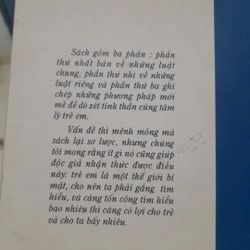 Sách gồm ba phần : phần
thứ nhất bàn về những luật
chung, phần thứ nhì về những
luật riêng và phần thứ ba ghi
chép những phương pháp mới
mẻ để dò xét tình thần cùng tâm
lý trẻ em.
Vấn đề thì mênh mông mà
sách lại sơ lược, nhưng chúng
tôi mong rằng ít gì nó cũng giúp
độc giả nhận thức được điều
này: trẻ em là một thế giới bí
mật, cho nên ta phải gắng tìm
hiểu, và càng tốn công tìm hiểu
bao nhiêu thì càng có lợi cho trẻ
và cho ta bấy nhiêu.